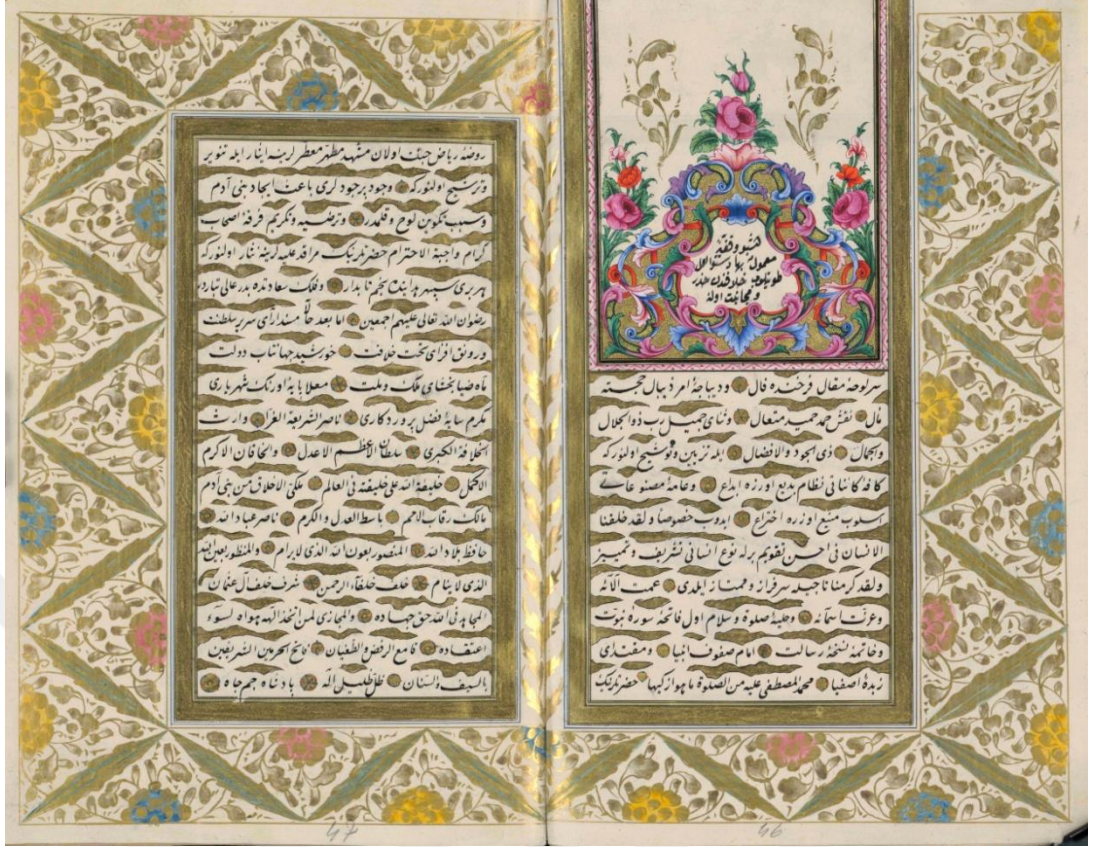 وقفيه
معمول بها
طوتيلوب خلافندن حذر
و مجانبت اولنه
سرلوحۀ مقال فرخنده فال وديباجۀ امر ذيبال خجسته
مآل نقش حمد حميد متعال وثناى جميل رب ذو الجلال
والجمال ذى الجود والافضال ايله تزيين وتوشيح اولنوركه
كافۀ كائناتى نظام بديع اوزره ابداع وعامۀ مصنوعاتى
اسلوب منيع اوزره اختراع ايدوب خصوصا ولقد خلقنا
الانسان فى احسن تقويم برله نوع انسانى تشريف وتمييز
ولقد كرمنا تاجيله سرفراز وممتاز ايلدى عمت آلائه
وعزت اسمائه وهديۀ صلوة وسلام اول فاتحۀ سورۀ نبوت
وخاتمۀ نسخۀ رسالت امام صفوف انبيا ومقتداى
زبدۀ اصفيا محمد المصطفى عليه من الصلوة ما هو ازكيها حضرتلرينك
روضۀ رياض جنت اولان مشهد مطهر معطرلرينه ايثار ايله تنوير
وترشيح اولنوركه وجود پرجودلرى باعث ايجاد بنى آدم
وسبب تكوين لوح وقلمدر وترضيه وتكريم فرقۀ اصحاب
كرام واجبة الاحترام حضرتلرينك مراقد عليه لرينه نثار اولنوركه
هر برى سپهر هدايتده نجم تابدار وفلك سعادتده بدر عالى تباردر
رضوان الله تعالى عليهم اجمعين اما بعد حالا مسندآراى سرير سلطنت
ورونق افزاى تخت خلافت خورشيد جهانتاب دولت
ماه ضيابخشاى ملك وملت معلا پايۀ اورنك شهريارى
مكرم سايۀ فضل پروردكارى ناصر الشريعة الغرا وارث
الخلافة الكبرى سلطان الاعظم الاعدل والخاقان الاكرم
الاكمل خليفة الله على خليقته فى العالم ملكى الاخلاق من بنى آدم
مالك رقاب الامم باسط العدل والكرم ناصر عباد الله
حافظ بلاد الله المنصور بعون الله الذى لا يرام والمنظور بعين الله
الذى لا ينام خلف خلفاء الرحمن شرف خلف آل عثمان
المجاهد فى الله حق جهاده والمجازى لمن اتخذ الهه هواه لسوء
اعتقاده قامع الرفض والطغيان فاتح الحرمين الشريفين
بالسيف والسنان ظل ظليل اله پادشاه جم جاه
47
46